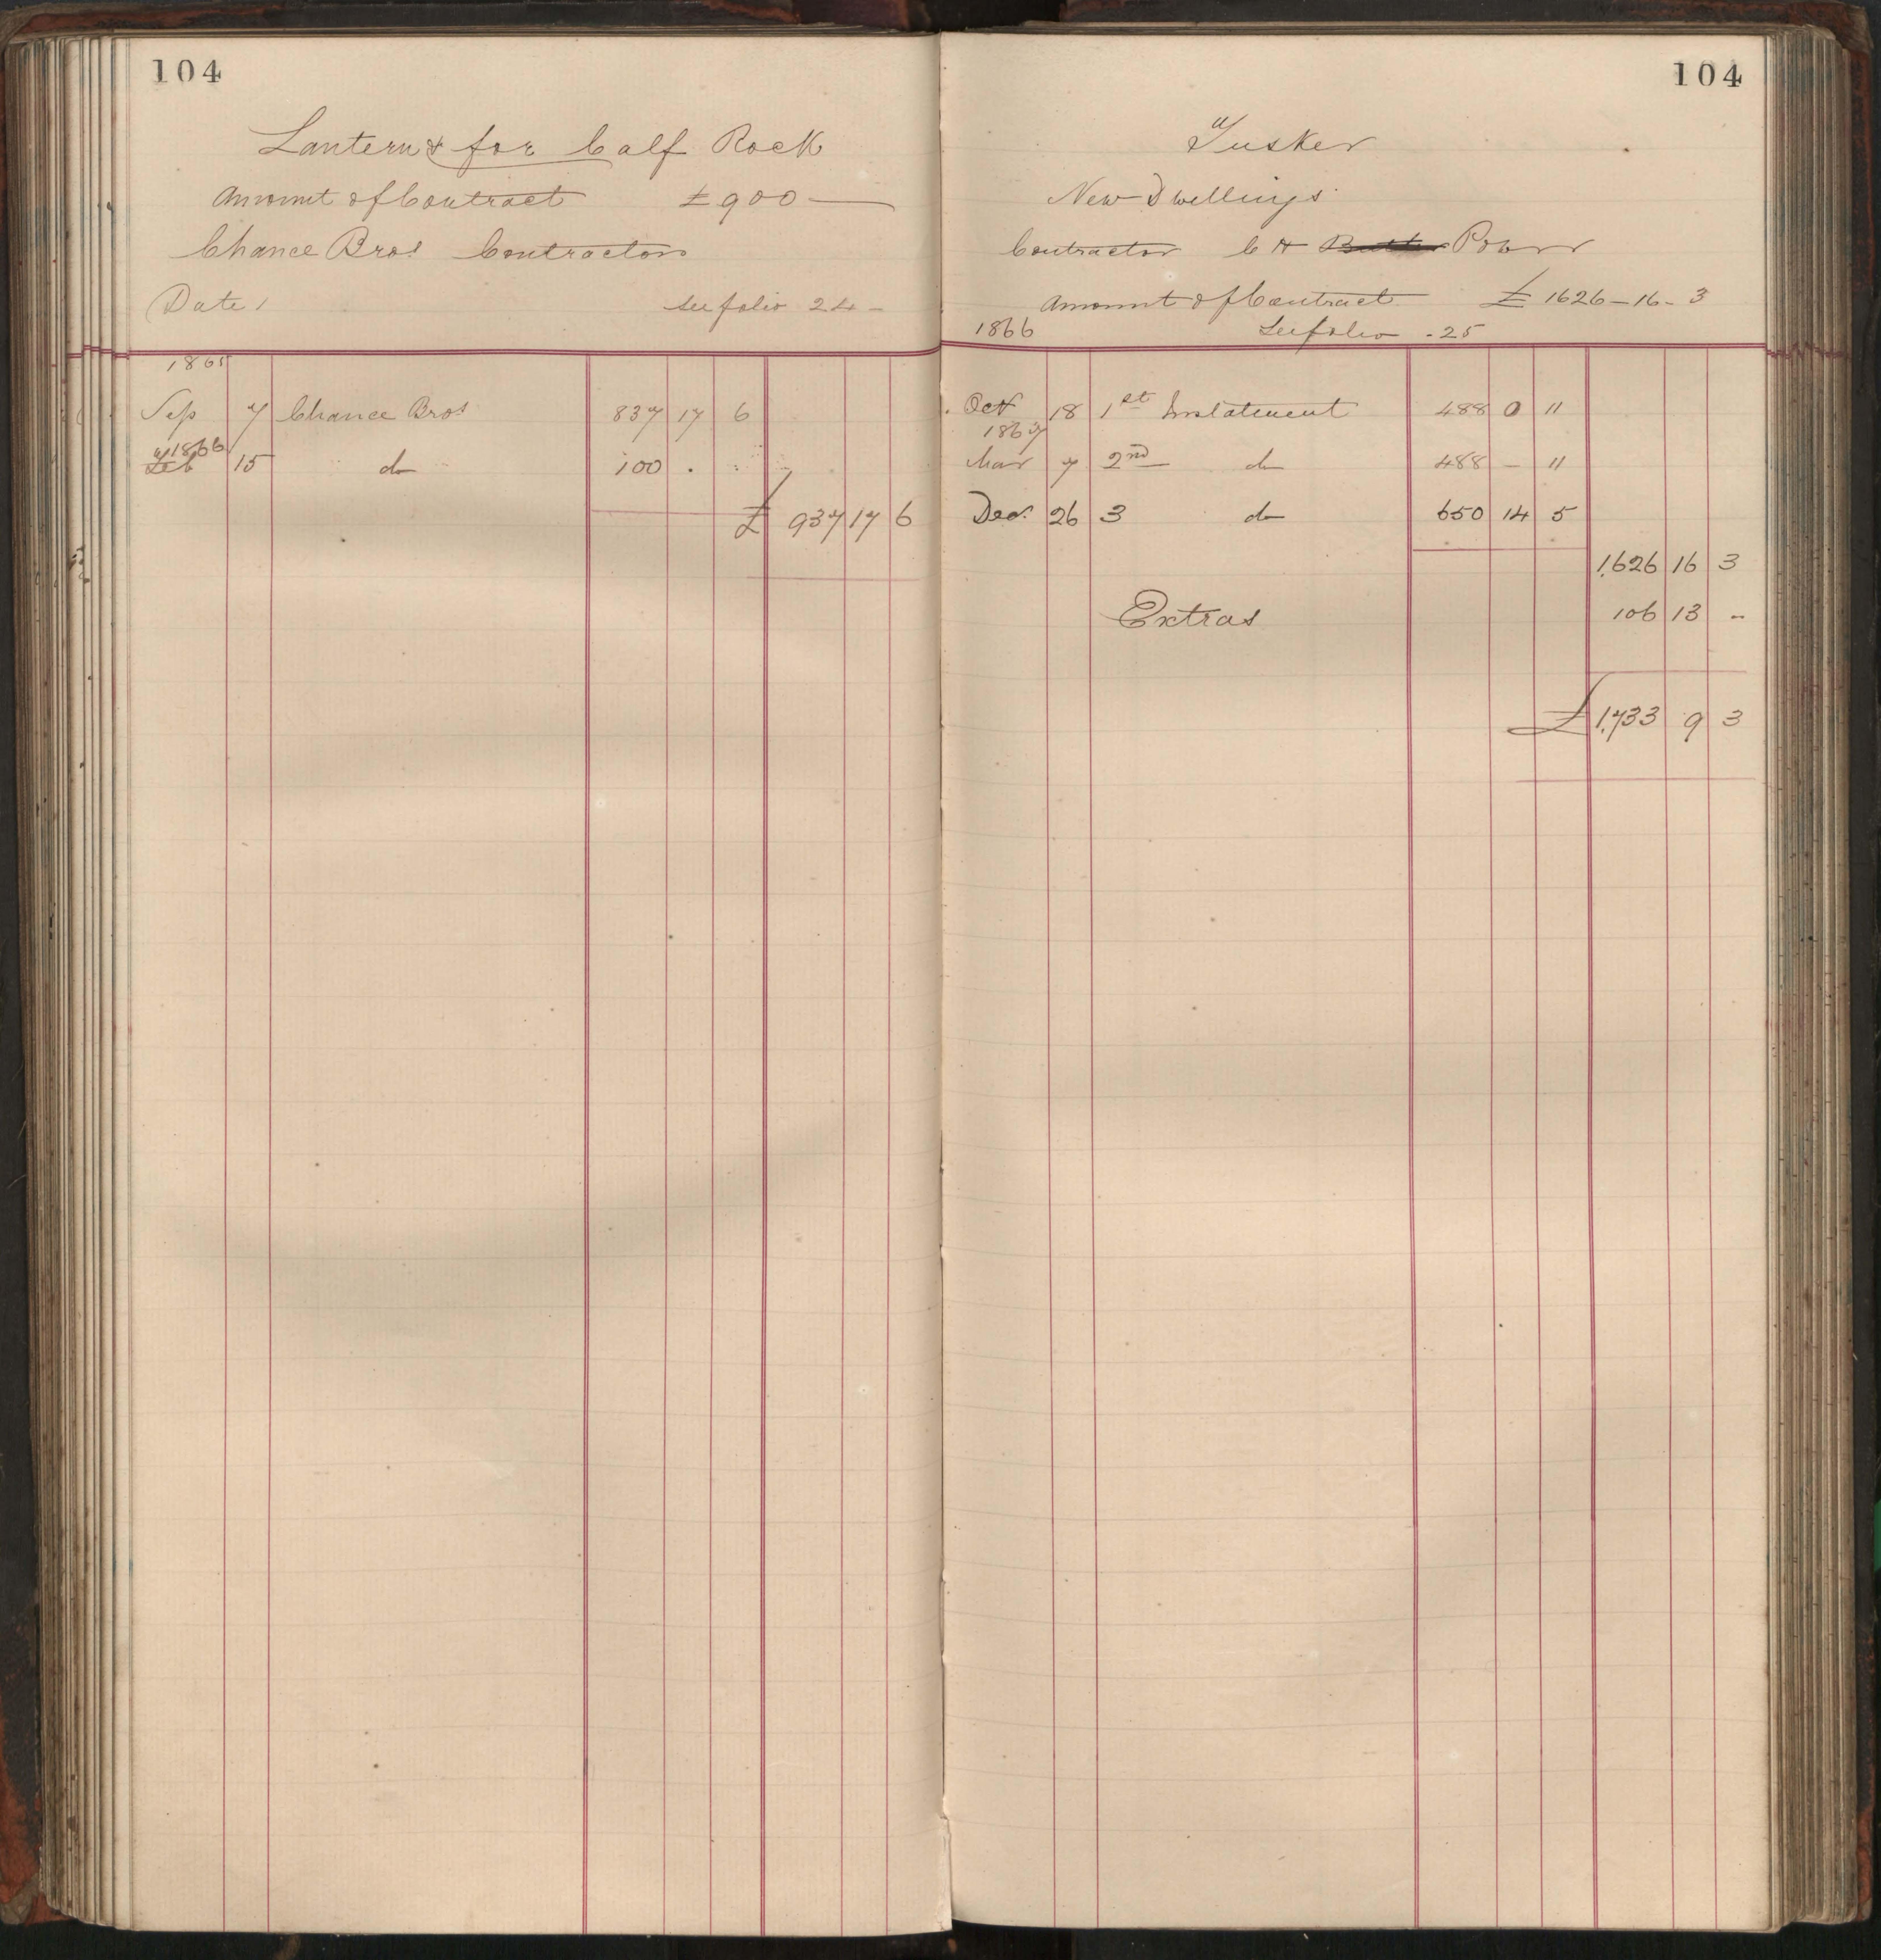 104
Lantern & for Calf Rock
Amount of Contract £900 —
Chance Bros Contractors
Date / See folio 24 -
1865
Sep 7 Chance Bros 837 17 6
1866
Feb 15 do 100 . .
£ 937 17 6
104
Tusker
New Dwellings
Contractor C H Power
Amount of Contract £ 1626-16-3
1866 See folio - 25
Oct 18 1st Instalment 488 0 11
1867
Mar 7 2nd do 488 — 11
Dec. 26 3 do 650 14 5
1,626 16 3
Extras 106 13 -
£ 1,733 9 3